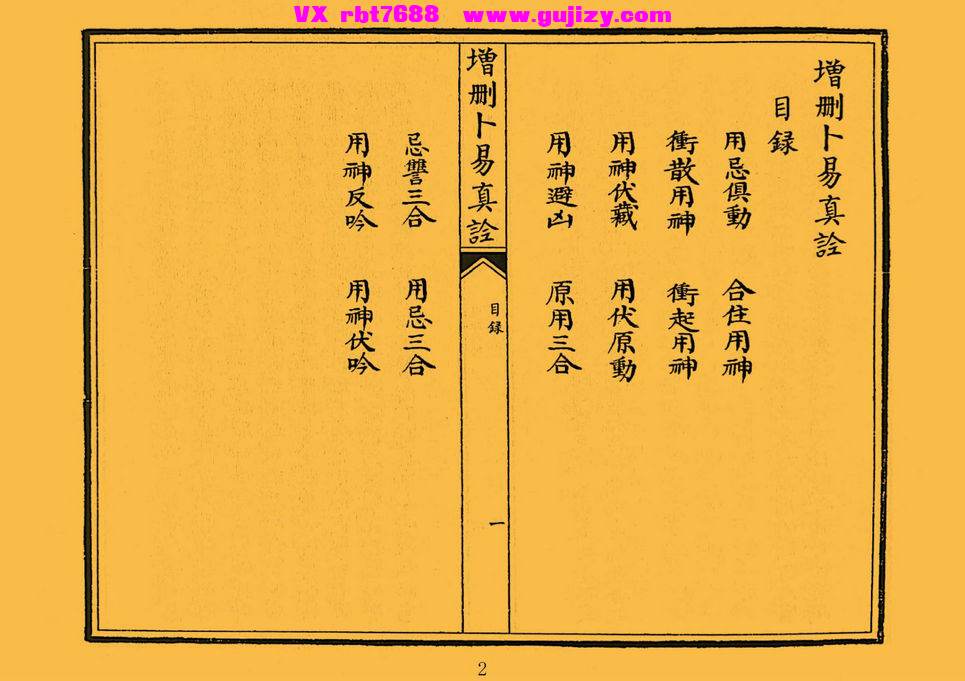 VX rbt7688 www.gujizy.com
增刪卜易真詮
目録
用忌俱動 合住用神
衝散用神 衝起用神
用神伏藏 用伏原動
用神避凶 原用三合
增刪卜易真詮 目録 一
忌讐三合 用忌三合
用神反吟 用神伏吟
2